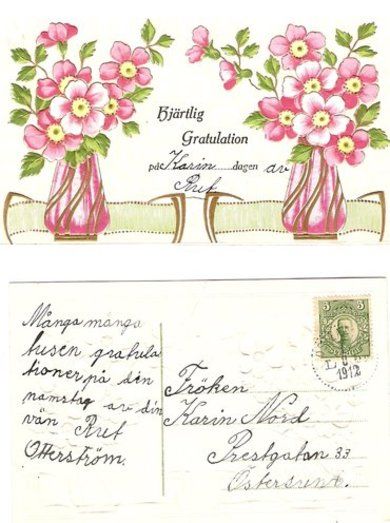 Hjärtlig
Gratulation
på Karin dagen av
Rut
Många många
tusen gratula
tioner på din
namsdag av din
vän Rut
Otterström.
5
1912
Fröken
Karin Nord
Prestgatan 33
Östersund.